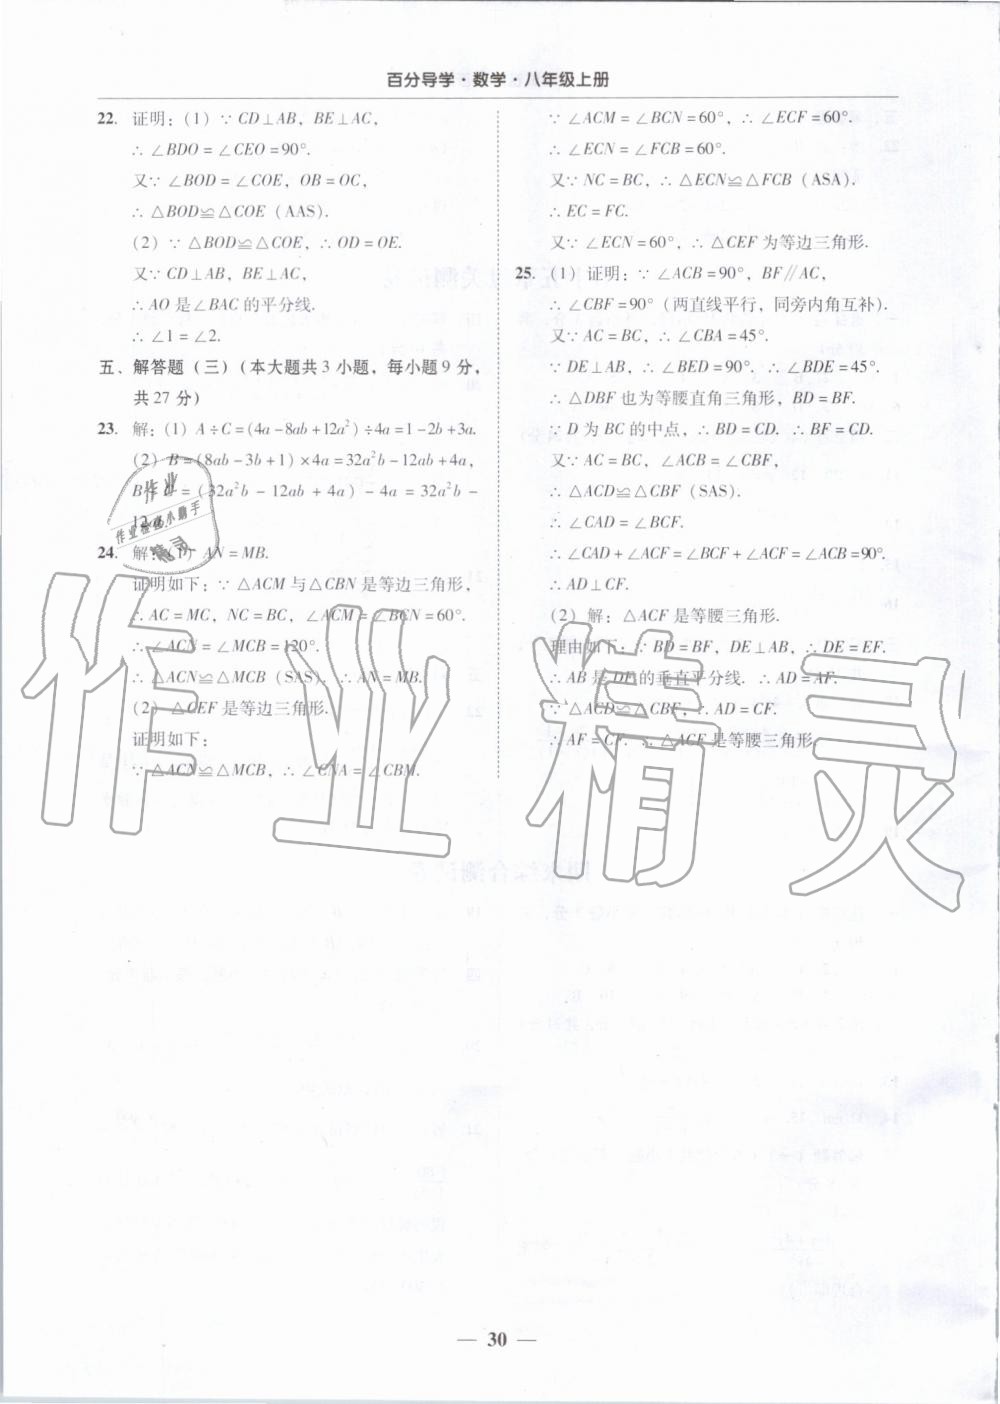 百分导学·数学·八年级上册
22. 证明：(1) ∵ CD⊥AB，BE⊥AC，
∴ ∠BDO=∠CEO=90°.
又∵ ∠BOD=∠COE，OB=OC，
∴ △BOD≌△COE（AAS）.
(2) ∵ △BOD≌△COE，∴ OD=OE.
又∵ CD⊥AB，BE⊥AC，
∴ AO 是∠BAC 的平分线.
∴ ∠1=∠2.
五、解答题（三）（本大题共 3 小题，每小题 9 分，
共 27 分）
23. 解：(1) A÷C=(4a-8ab+12a²)÷4a=1-2b+3a.
(2) B=(8ab-3b+1)×4a=32a²b-12ab+4a，
(32a²b-12ab+4a)-4a=32a²b-
24. 解：(1) AN=MB.
证明如下：∵ △ACM 与△CBN 是等边三角形，
∴ AC=MC，NC=BC，∠ACM=∠BCN=60°.
∴ ∠ACN=∠MCB=120°.
∴ △ACN≌△MCB（SAS）. ∴ AN=MB.
(2) △CEF 是等边三角形.
证明如下：
∵ △ACN≌△MCB，∴ ∠CNA=∠CBM.
∵ ∠ACM=∠BCN=60°，∴ ∠ECF=60°.
∴ ∠ECN=∠FCB=60°.
又∵ NC=BC，∴ △ECN≌△FCB（ASA）.
∴ EC=FC.
又∵ ∠ECN=60°，∴ △CEF 为等边三角形.
25. (1) 证明：∵ ∠ACB=90°，BF∥AC，
∴ ∠CBF=90°（两直线平行，同旁内角互补）.
又∵ AC=BC，∴ ∠CBA=45°.
∵ DE⊥AB，∴ ∠BED=90°. ∴ ∠BDE=45°.
∴ △DBF 也为等腰直角三角形，BD=BF.
∵ D 为 BC 的中点，∴ BD=CD. ∴ BF=CD.
又∵ AC=BC，∠ACB=∠CBF，
∴ △ACD≌△CBF（SAS）.
∴ ∠CAD=∠BCF.
∴ ∠CAD+∠ACF=∠BCF+∠ACF=∠ACB=90°.
∴ AD⊥CF.
(2) 解：△ACF 是等腰三角形.
理由如下：∵ BD=BF，DE⊥AB，∴ DE=EF.
∴ AB 是 DF 的垂直平分线. ∴ AD=AF.
∵ △ACD≌△CBF，∴ AD=CF.
∴ AF=CF. ∴ △ACF 是等腰三角形.
作业
作业检查小助手
精灵
作业精灵
— 30 —